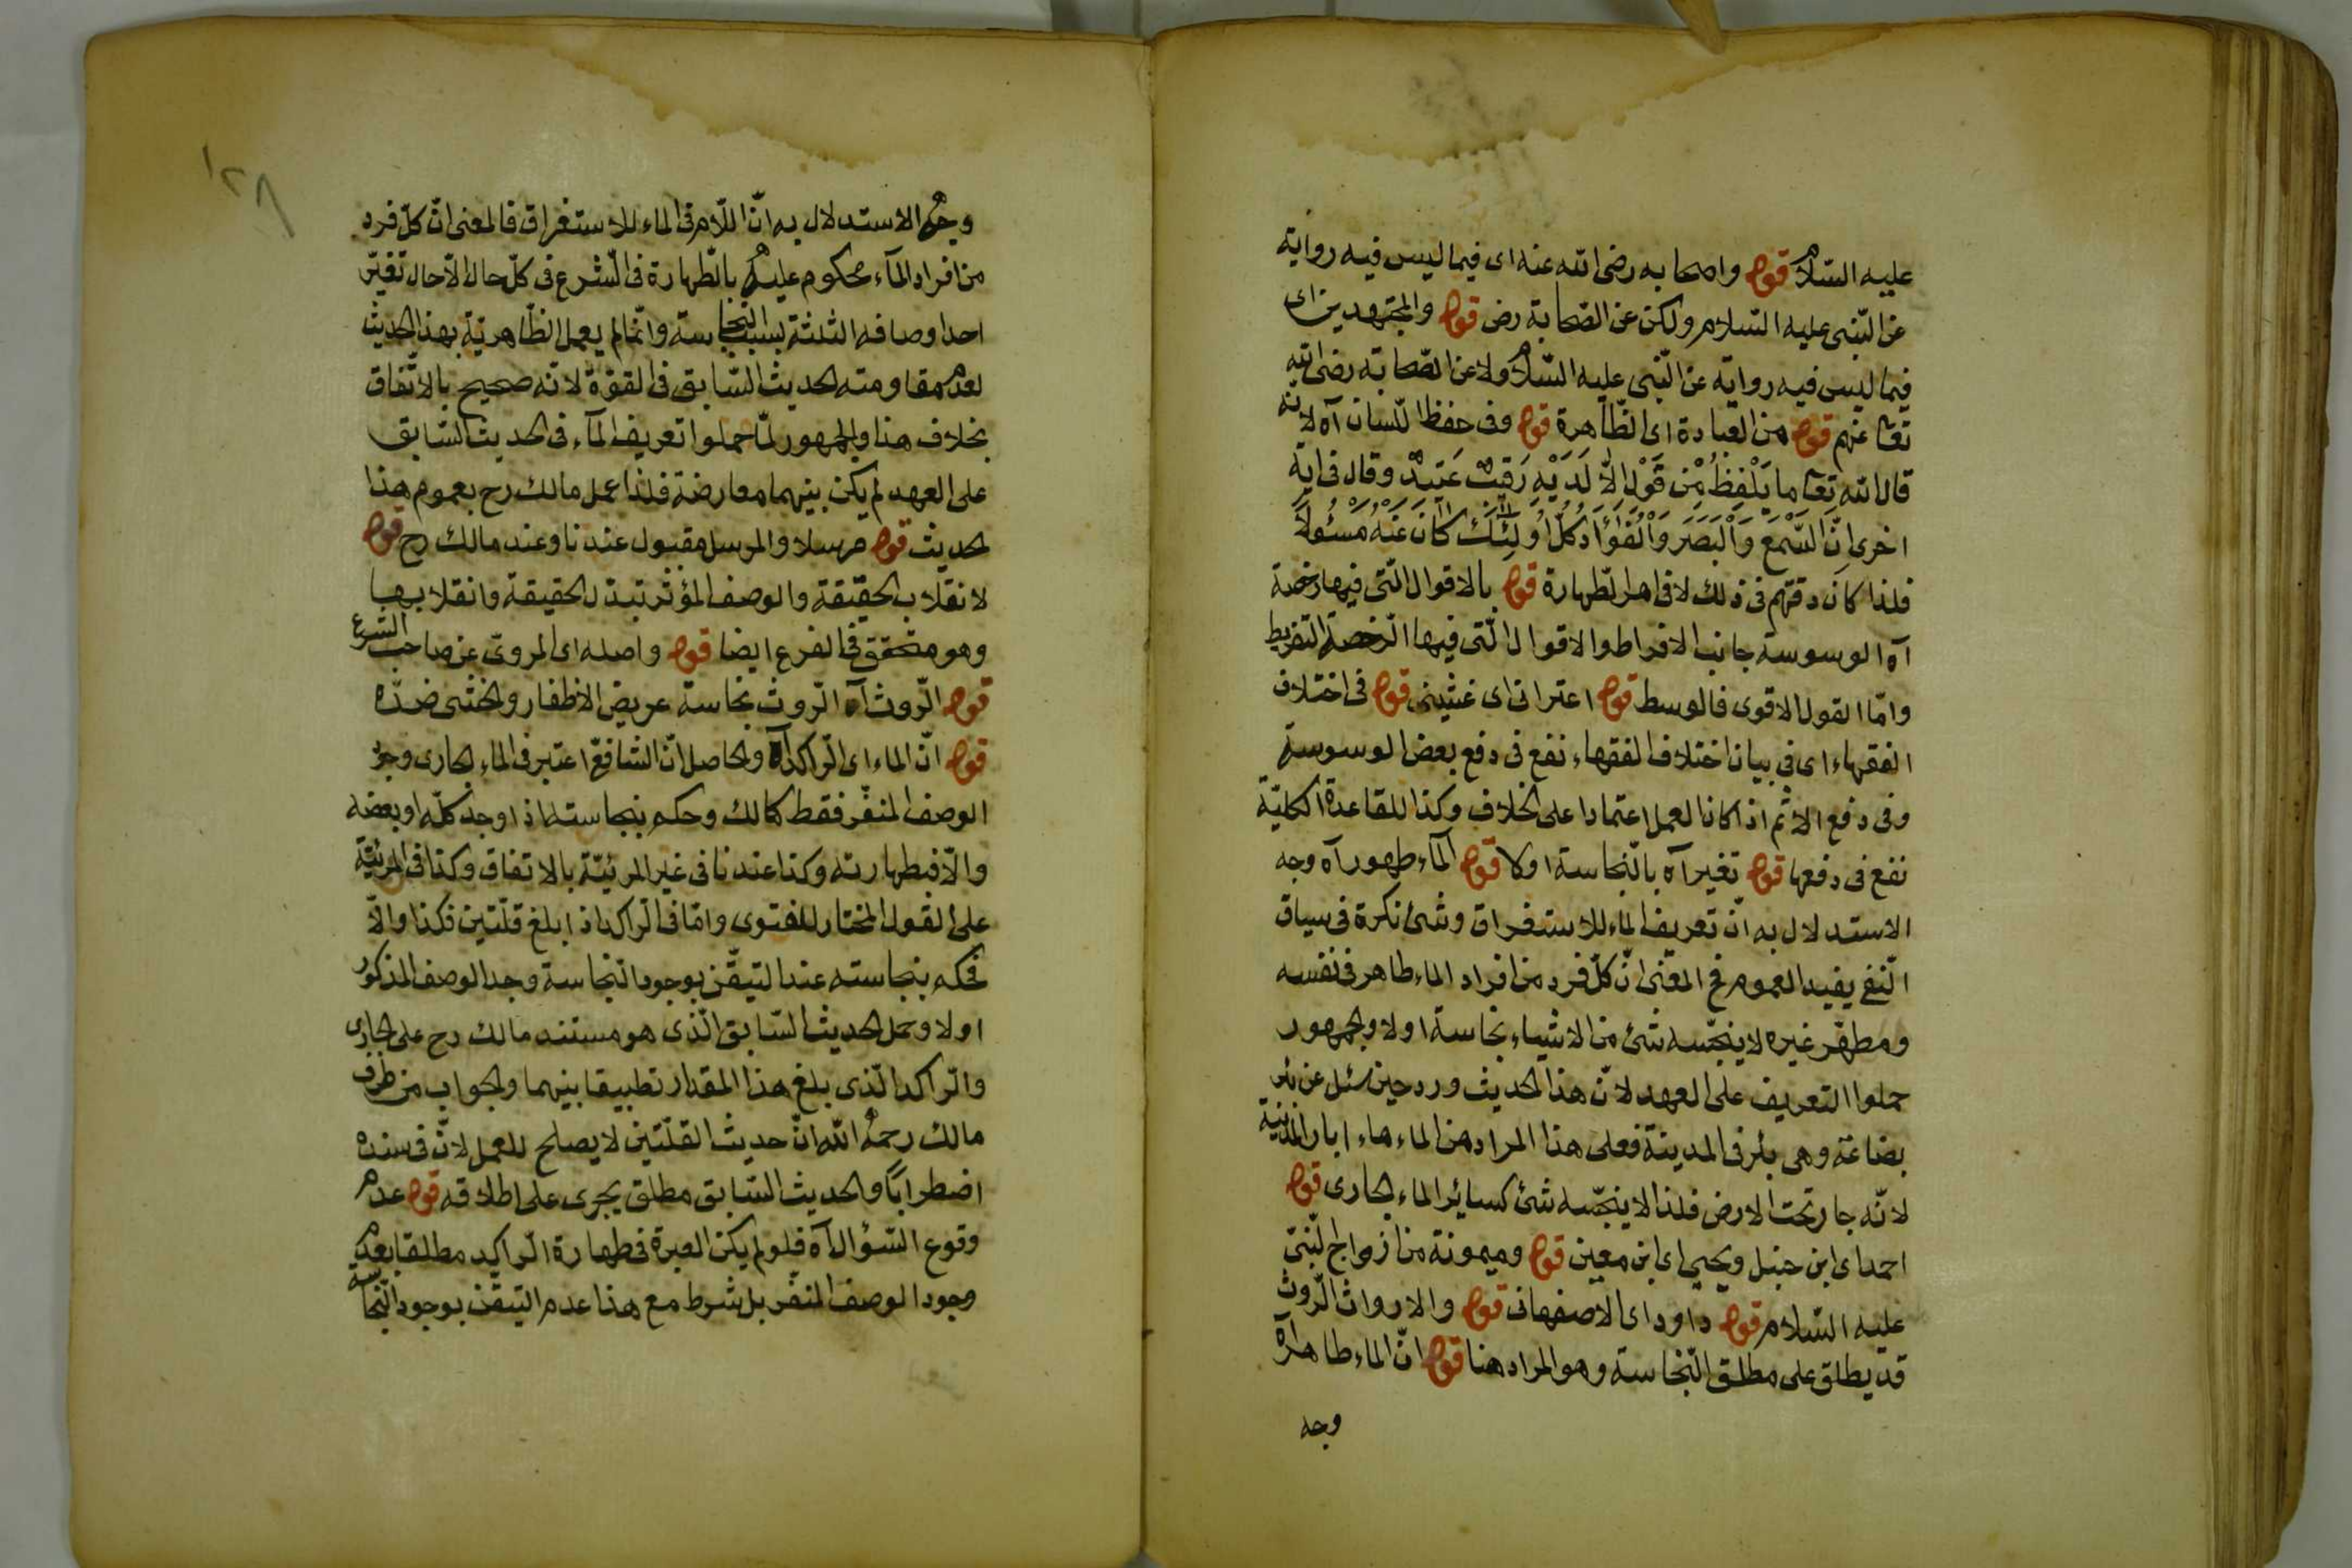 عليه السّلام قوله واصحابه رضى الله عنه اى فيما ليس فيه رواية
عن النّبى عليه السّلام ولكن عن الصّحابة رض قوله والمجتهدين اى
فيما ليس فيه رواية عن النّبى عليه السّلام ولا عن الصّحابة رضى الله
تعا عنهم قوله من العبادة اى الظّاهرة قوله وفى حفظ اللّسان آه لانه
قال الله تعا ما يَلْفِظُ مِنْ قَوْلٍ اِلاَّ لَدَيْهِ رَقِيبٌ عَتِيدٌ وقال فى اية
اخرى اِنَّ السَّمْعَ وَالْبَصَرَ وَالْفُؤَادَ كُلُّ اُولٰئِكَ كَانَ عَنْهُ مَسْئُولاً
فلذا كان دقتهم فى ذلك لا فى امر الطّهارة قوله بالاقوال الّتى فيها رخصة
آه الوسوسة جانب الافراط والاقوال الّتى فيها الرّخصة التفريط
وامّا القول الاقوى فالوسط قوله اعترانى اى غشينى قوله فى اختلاف
الفقهاء اى فى بيان اختلاف الفقهاء نفع فى دفع بعض الوسوسة
وفى دفع الاثم اذا كان العمل اعتمادا على الخلاف وكذا للقاعدة الكليّة
نفع فى دفعها قوله تغير آه بالنّجاسة اولا قوله الماء طهور آه وجه
الاستدلال به انّ تعريف الماء للاستغراق وشئ نكرة فى سياق
النّفى يفيد العموم فح المعنى انّ كلّ فرد من افراد الماء طاهر فى نفسه
ومطهّر غيره لا ينجّسه شئ من الاشياء نجاسة اولا والجمهور
حملوا التعريف على العهد لانّ هذا الحديث ورد حين سئل عن بئر
بضاعة وهى بئر فى المدينة فعلى هذا المراد من الماء ماء ابار المدينة
لانّه جار تحت الارض فلذا لا ينجّسه شئ كسائر الماء الجارى قوله
احمد اى ابن حنبل ويحيى اى ابن معين قوله وميمونة من ازواج النّبىّ
عليه السّلام قوله داود اى الاصفهانى قوله والارواث الرّوث
قد يطلق على مطلق النّجاسة وهو المراد هنا قوله انّ الماء طاهر آه
وجه
١٢٨
وجه الاستدلال به انّ اللّام فى الماء للاستغراق فالمعنى انّ كلّ فرد
من افراد الماء محكوم عليه بالطّهارة فى الشّرع فى كلّ حال الاّ حال تغيّر
احد اوصافه الثلثة بسبب النّجاسة وانّما لم يعمل الظّاهريّة بهذا الحديث
لعدم مقاومته الحديث السّابق فى القوّة لانّه صحيح بالاتّفاق
بخلاف هذا والجمهور لمّا حملوا تعريف الماء فى الحديث السّابق
على العهد لم يكن بينهما معارضة فلذا عمل مالك رح بعموم هذا
الحديث قوله مرسلا والمرسل مقبول عندنا وعند مالك رح قوله
لانقلاب الحقيقة والوصف المؤثّر تبدّل الحقيقة وانقلابها
وهو متحقق فى الفرع ايضا قوله واصله اى المروىّ عن صاحب الشرع
قوله الرّوث آه الرّوث نجاسة عريض الاظفار والخثى ضدّه
قوله انّ الماء اى الرّاكد آه والحاصل انّ الشافعّ اعتبر فى الماء الجارى وجود
الوصف المنفّر فقط كمالك وحكم بنجاسته اذا وجد كلّه او بعضه
والاّ فبطهارته وكذا عندنا فى غير المرئيّة بالاتفاق وكذا فى المرئيّة
على القول المختار للفتوى وامّا فى الرّاكد اذا بلغ قلّتين فكذا والاّ
فحكم بنجاسته عند التيقّن بوجود النّجاسة وجد الوصف المذكور
اولا وحمل الحديث السّابق الّذى هو مستند مالك رح على الجارى
والرّاكد الّذى بلغ هذا المقدار تطبيقا بينهما والجواب من طرف
مالك رحمه الله انّ حديث القلّتين لا يصلح للعمل لانّ فى سنده
اضطرابا والحديث السّابق مطلق يجرى على اطلاقه قوله عدم
وقوع السّؤال آه فلو لم يكن العبرة فى طهارة الرّاكد مطلقا بعدم
وجود الوصف المنفّر بل شرط مع هذا عدم التيقّن بوجود النّجاسة